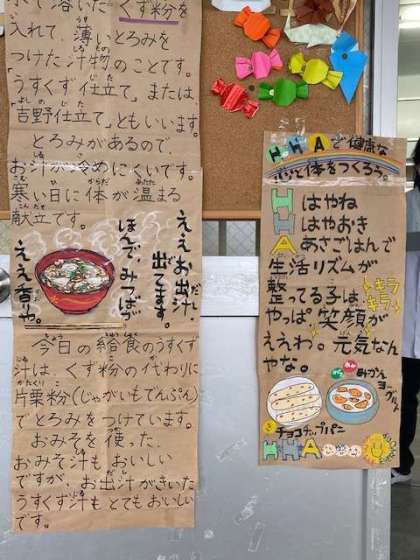 水で溶いた くず粉を
入れて、薄いとろみを
つけた汁物のことです。
「うすくず仕立て」または、
「吉野仕立て」ともいいます。
とろみがあるので、
お汁が冷めにくいです。
寒い日に体が温まる
献立です。
ええお出汁
出てます。
ほんで、みつばが
ええ香や。
今日の給食のうすくず
汁は、くず粉の代わりに
片栗粉(じゃがいもでんぷん)
でとろみをつけています。
おみそを使った、
おみそ汁もおいしい
ですが、お出汁がきいた
うすくず汁もとてもおいしい
です。
HHAで健康な
心と体をつくろう。
H はやね
H はやおき
A あさごはんで
生活リズムが
整ってる子は、
キラキラ
やっぱ笑顔が
ええわ。元気なん
やな。
みかん
ヨーグルト
チョコチップパン
HHA